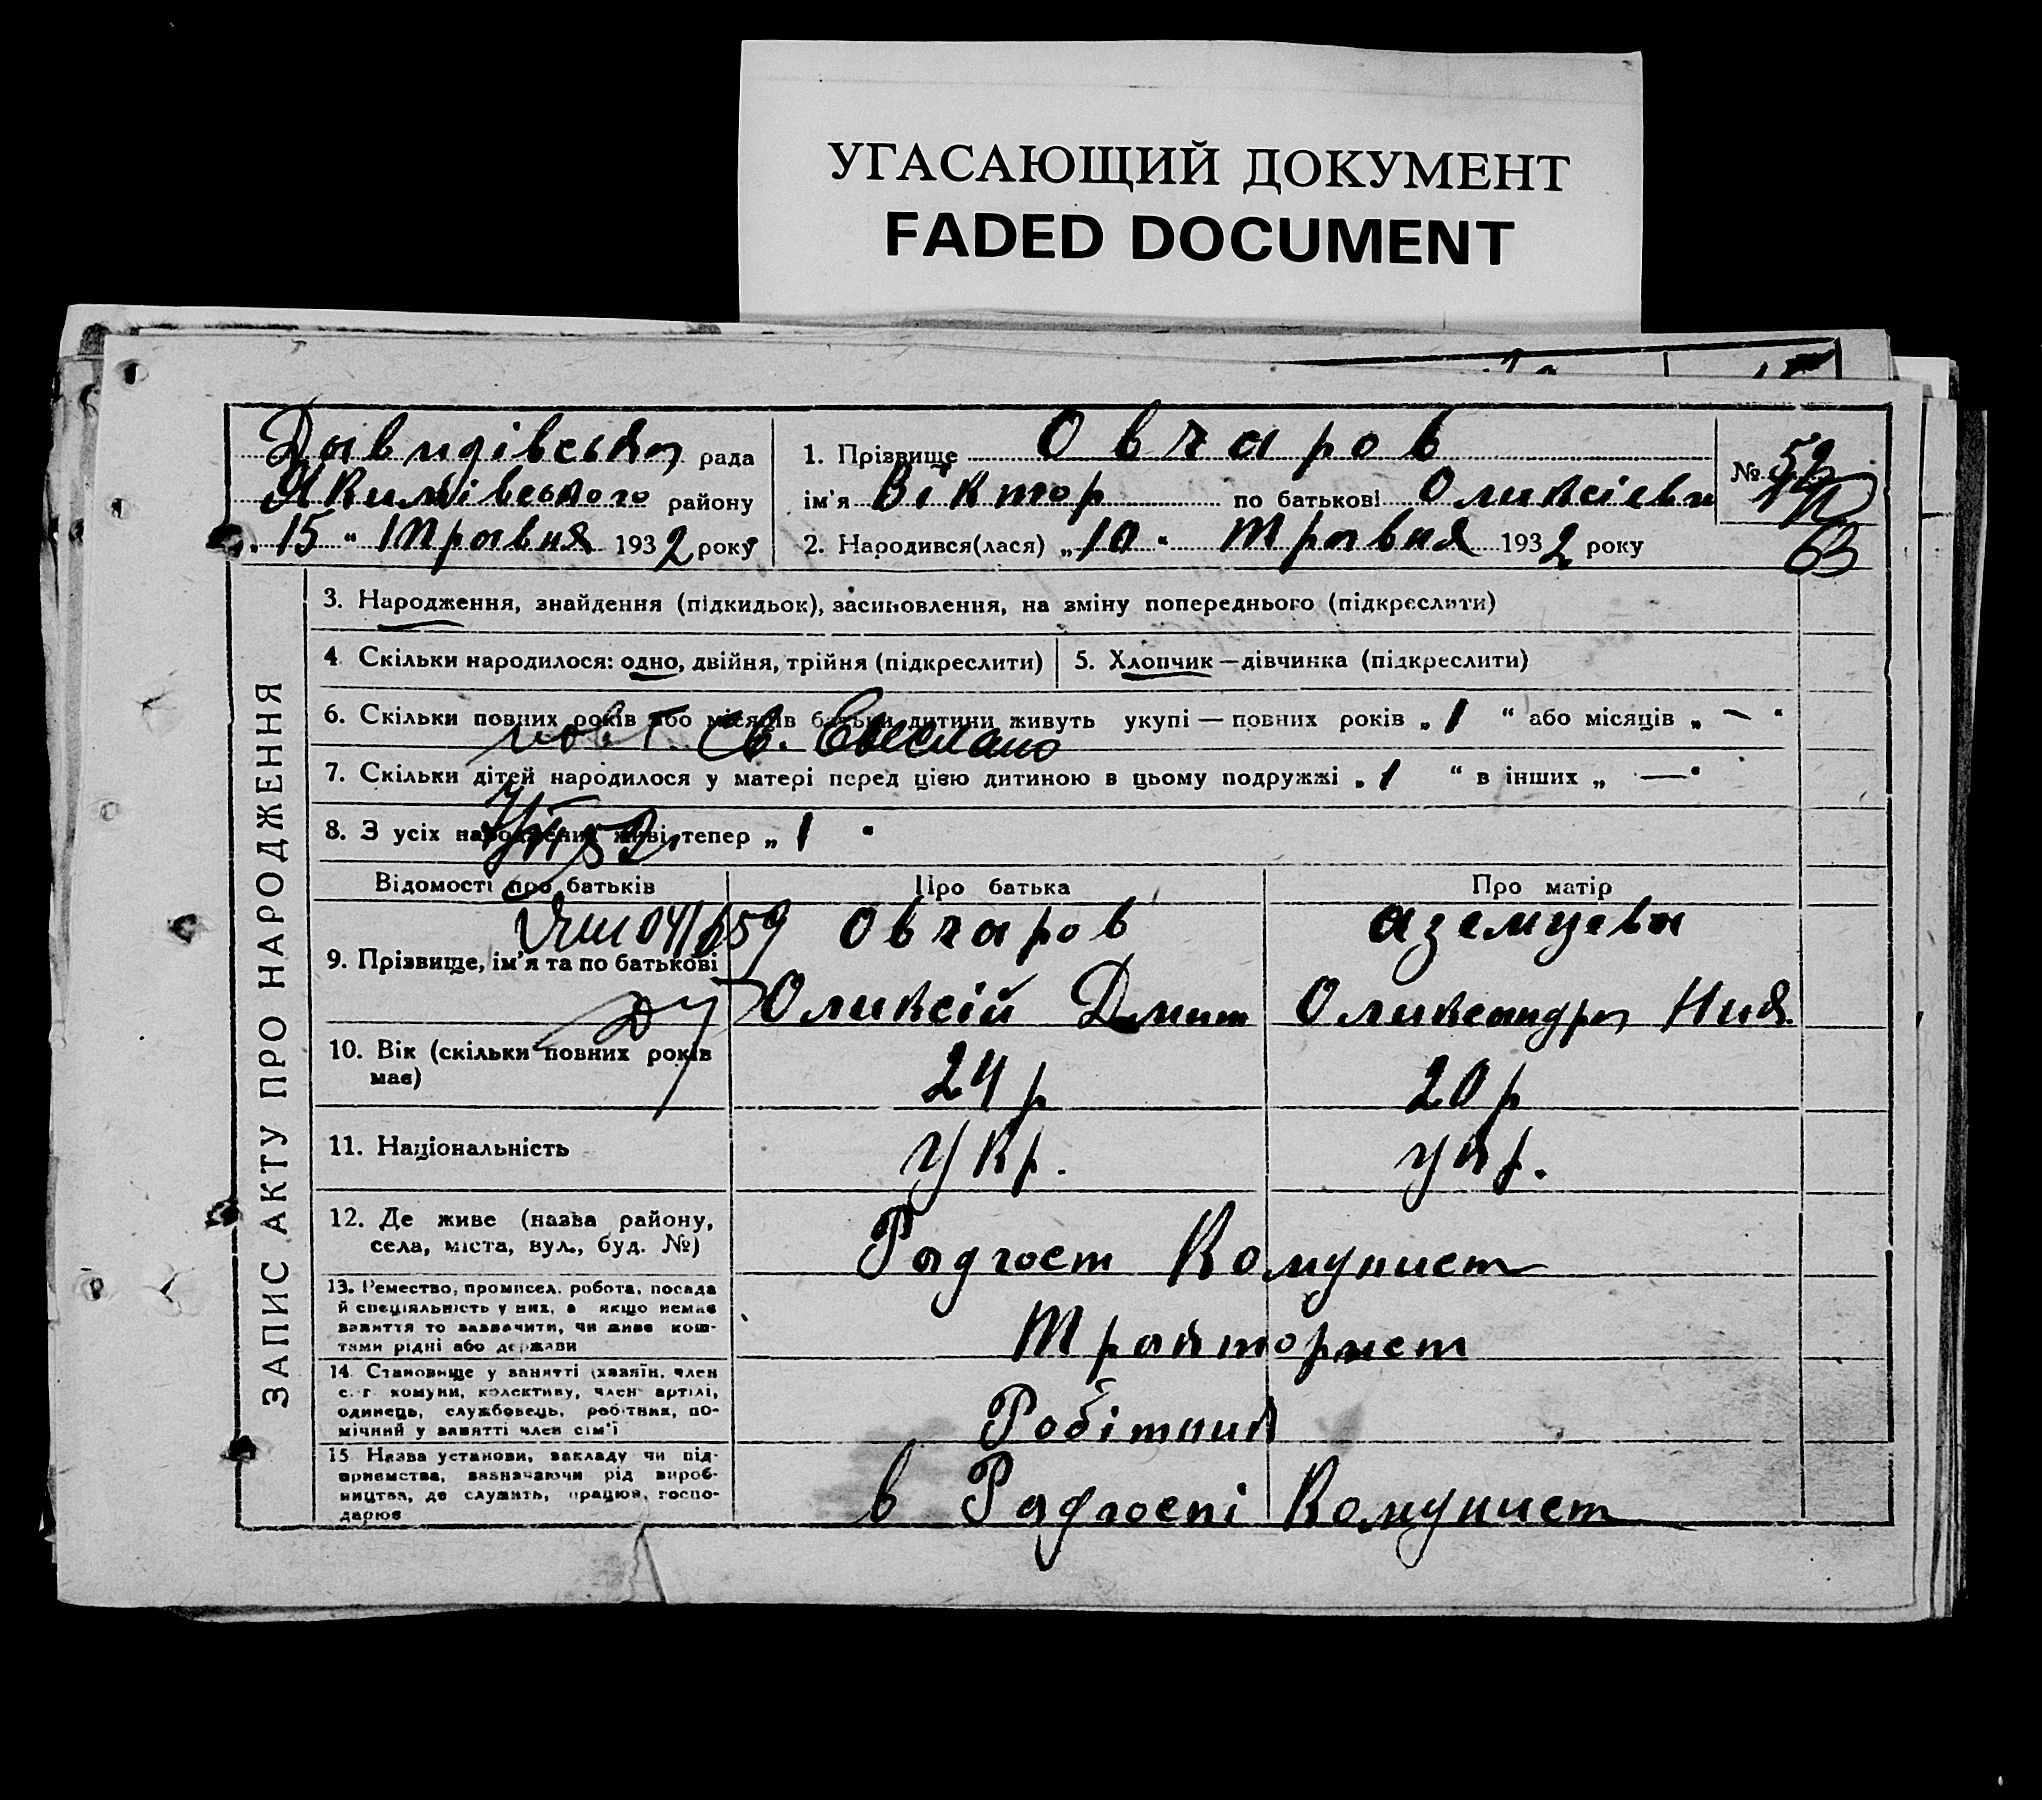 УГАСАЮЩИЙ ДОКУМЕНТ
FADED DOCUMENT
Давидівська рада
Якимівського району
15 " Травня 1932 року
1. Прізвище Овчаров
ім'я Віктор по батькові Оликсієви
2. Народився(лася) „10" Травня 1932 року
№ 52
63
ЗАПИС АКТУ ПРО НАРОДЖЕННЯ
3. Народження, знайдення (підкидьок), засиновлення, на зміну попереднього (підкреслити)
4 Скільки народилося: одно, двійня, трійня (підкреслити)
5. Хлопчик—дівчинка (підкреслити)
6. Скільки повних років або місяців батьки дитини живуть укупі — повних років „1" або місяців „—"
повт. Св.
7. Скільки дітей народилося у матері перед цією дитиною в цьому подружжі „1" в інших „—"
8. З усіх народжених живі тепер „1"
Відомості про батьків
Про батька
Про матір
9. Прізвище, ім'я та по батькові
Овчаров
Оликсій Дмит
Аземцева
Оликсандра Ник.
10. Вік (скільки повних років має)
24 р
20 р
11. Національність
Укр.
укр.
12. Де живе (назва району,
села, міста, вул., буд. №)
Радгосп Комунист
13. Ремество, промисел, робота, посада
й спеціяльність у них, а якщо немає
заняття то зазначити, чи живе кош-
тами рідні або держави
Тракторист
14. Становище у занятті (хазяїн, член
с.-г. комуни, колективу, член артілі,
одинець, службовець, робітник, по-
мічний у занятті член сім'ї
Робітник
15 Назва установи, закладу чи під-
приємства, зазначаючи рід вироб-
ництва, де служить, працює, госпо-
дарює
в Радгоспі Комунист